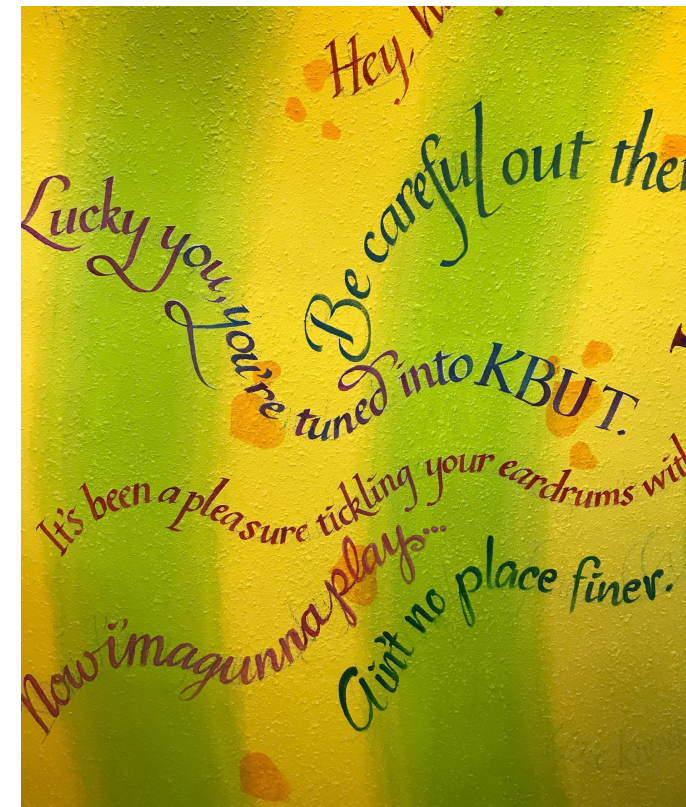 Hey,
Be careful out
Lucky you, you're tuned into KBUT.
It's been a pleasure tickling your eardrums with
Now i'm a gunna play...
Ain't no place finer.